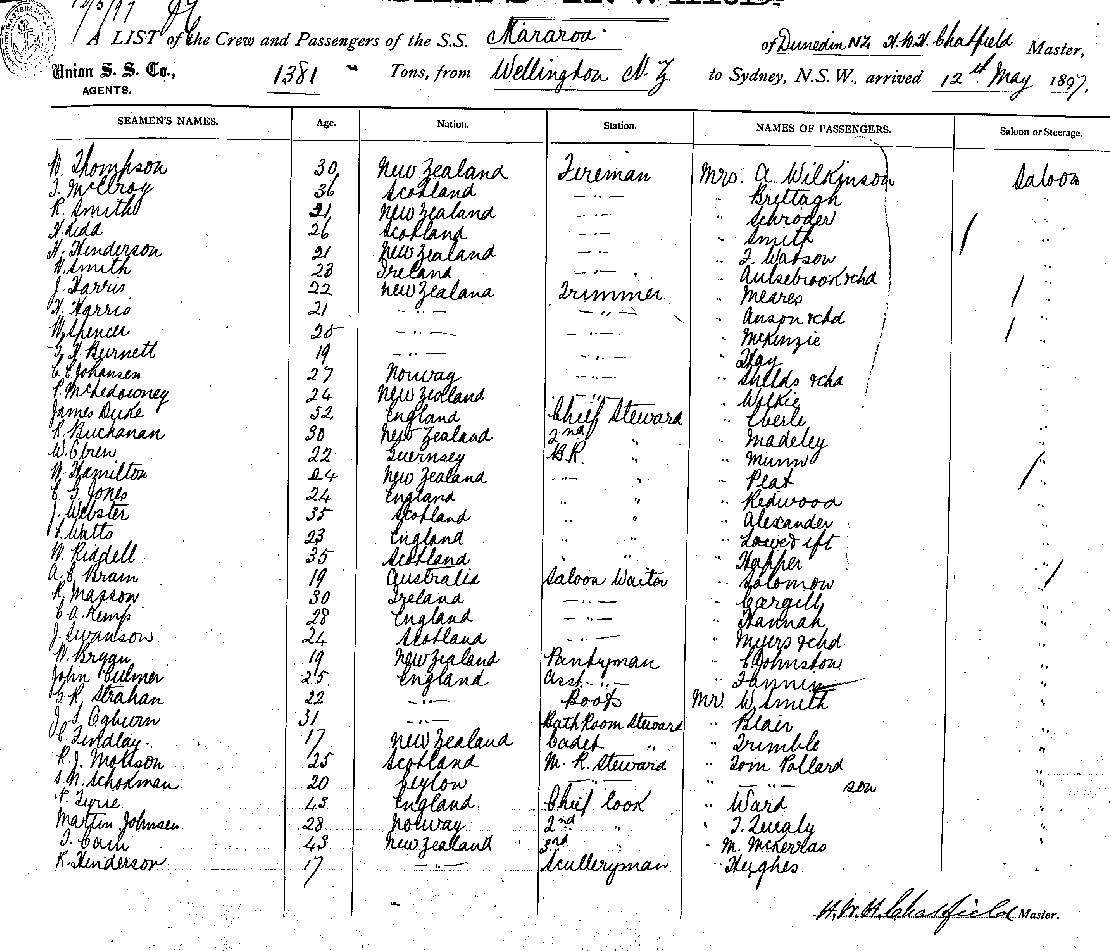 A LIST of the Crew and Passengers of the S.S. Mararoa of Dunedin NZ H.W.H. Chatfield Master,
Union S. S. Co., 1381 Tons, from Wellington N Z to Sydney, N.S.W., arrived 12th May 1897.
AGENTS.
SEAMEN'S NAMES. Age. Nation. Station. NAMES OF PASSENGERS. Saloon or Steerage.
W. Thompson 30 New Zealand Fireman Mrs. A Wilkinson Saloon
T. McElroy 36 Scotland " Brittagh "
R. Smith 21 New Zealand " Schroder "
26 Scotland " Smith "
H. Henderson 21 New Zealand " T Watson "
H. Smith 23 Ireland " Aulsebrook & chd "
J. Harris 22 New Zealand Trimmer " Meares "
H. Harris 21 " " " Anson & chd "
W. Spencer 25 " " " McKenzie "
Burnett 19 " " " Hay "
C. E. Johansen 27 Norway " " Shields & chd "
24 New Zealand " " Wilkie "
James Duke 52 England Chief Steward " Eberle "
R. Buchanan 30 New Zealand 2nd " " Madeley "
W. Obren 22 Guernsey B.R. " " Munn "
W. Hamilton 24 New Zealand " " " Peat "
E. G. Jones 24 England " " " Redwood "
J. Webster 35 Scotland " " " Alexander "
Watts 23 England " " "
W. Riddell 35 Scotland " " " Happer "
A. E. Brain 19 Australia Saloon Waiter " Salomon "
R. Masson 30 Ireland " " Cargill "
C. A. Kemp 28 England " " Hannah "
J. Swanson 24 Scotland " " Myers & chd "
W. Bryan 19 New Zealand Pantryman " C Johnston "
John Culmer 25 England Asst. " " Fannin "
Strahan 22 " Boots Mr. W. Smith "
J. S. Ogburn 31 " Bath Room Steward " Blair "
C. Findlay 17 New Zealand Cadet " " Trimble "
R. J. Mollison 25 Scotland M. R. Steward " Tom Pollard "
Schokman 20 Ceylon " " son "
Tyrie 43 England Chief Cook " Ward "
Martin Johnsen 28 Norway 2nd " " T. Quealy "
T. Cain 43 New Zealand 3rd " M. McKerras "
R. Henderson 17 " Sculleryman " Hughes
H.W.H. Chatfield Master.